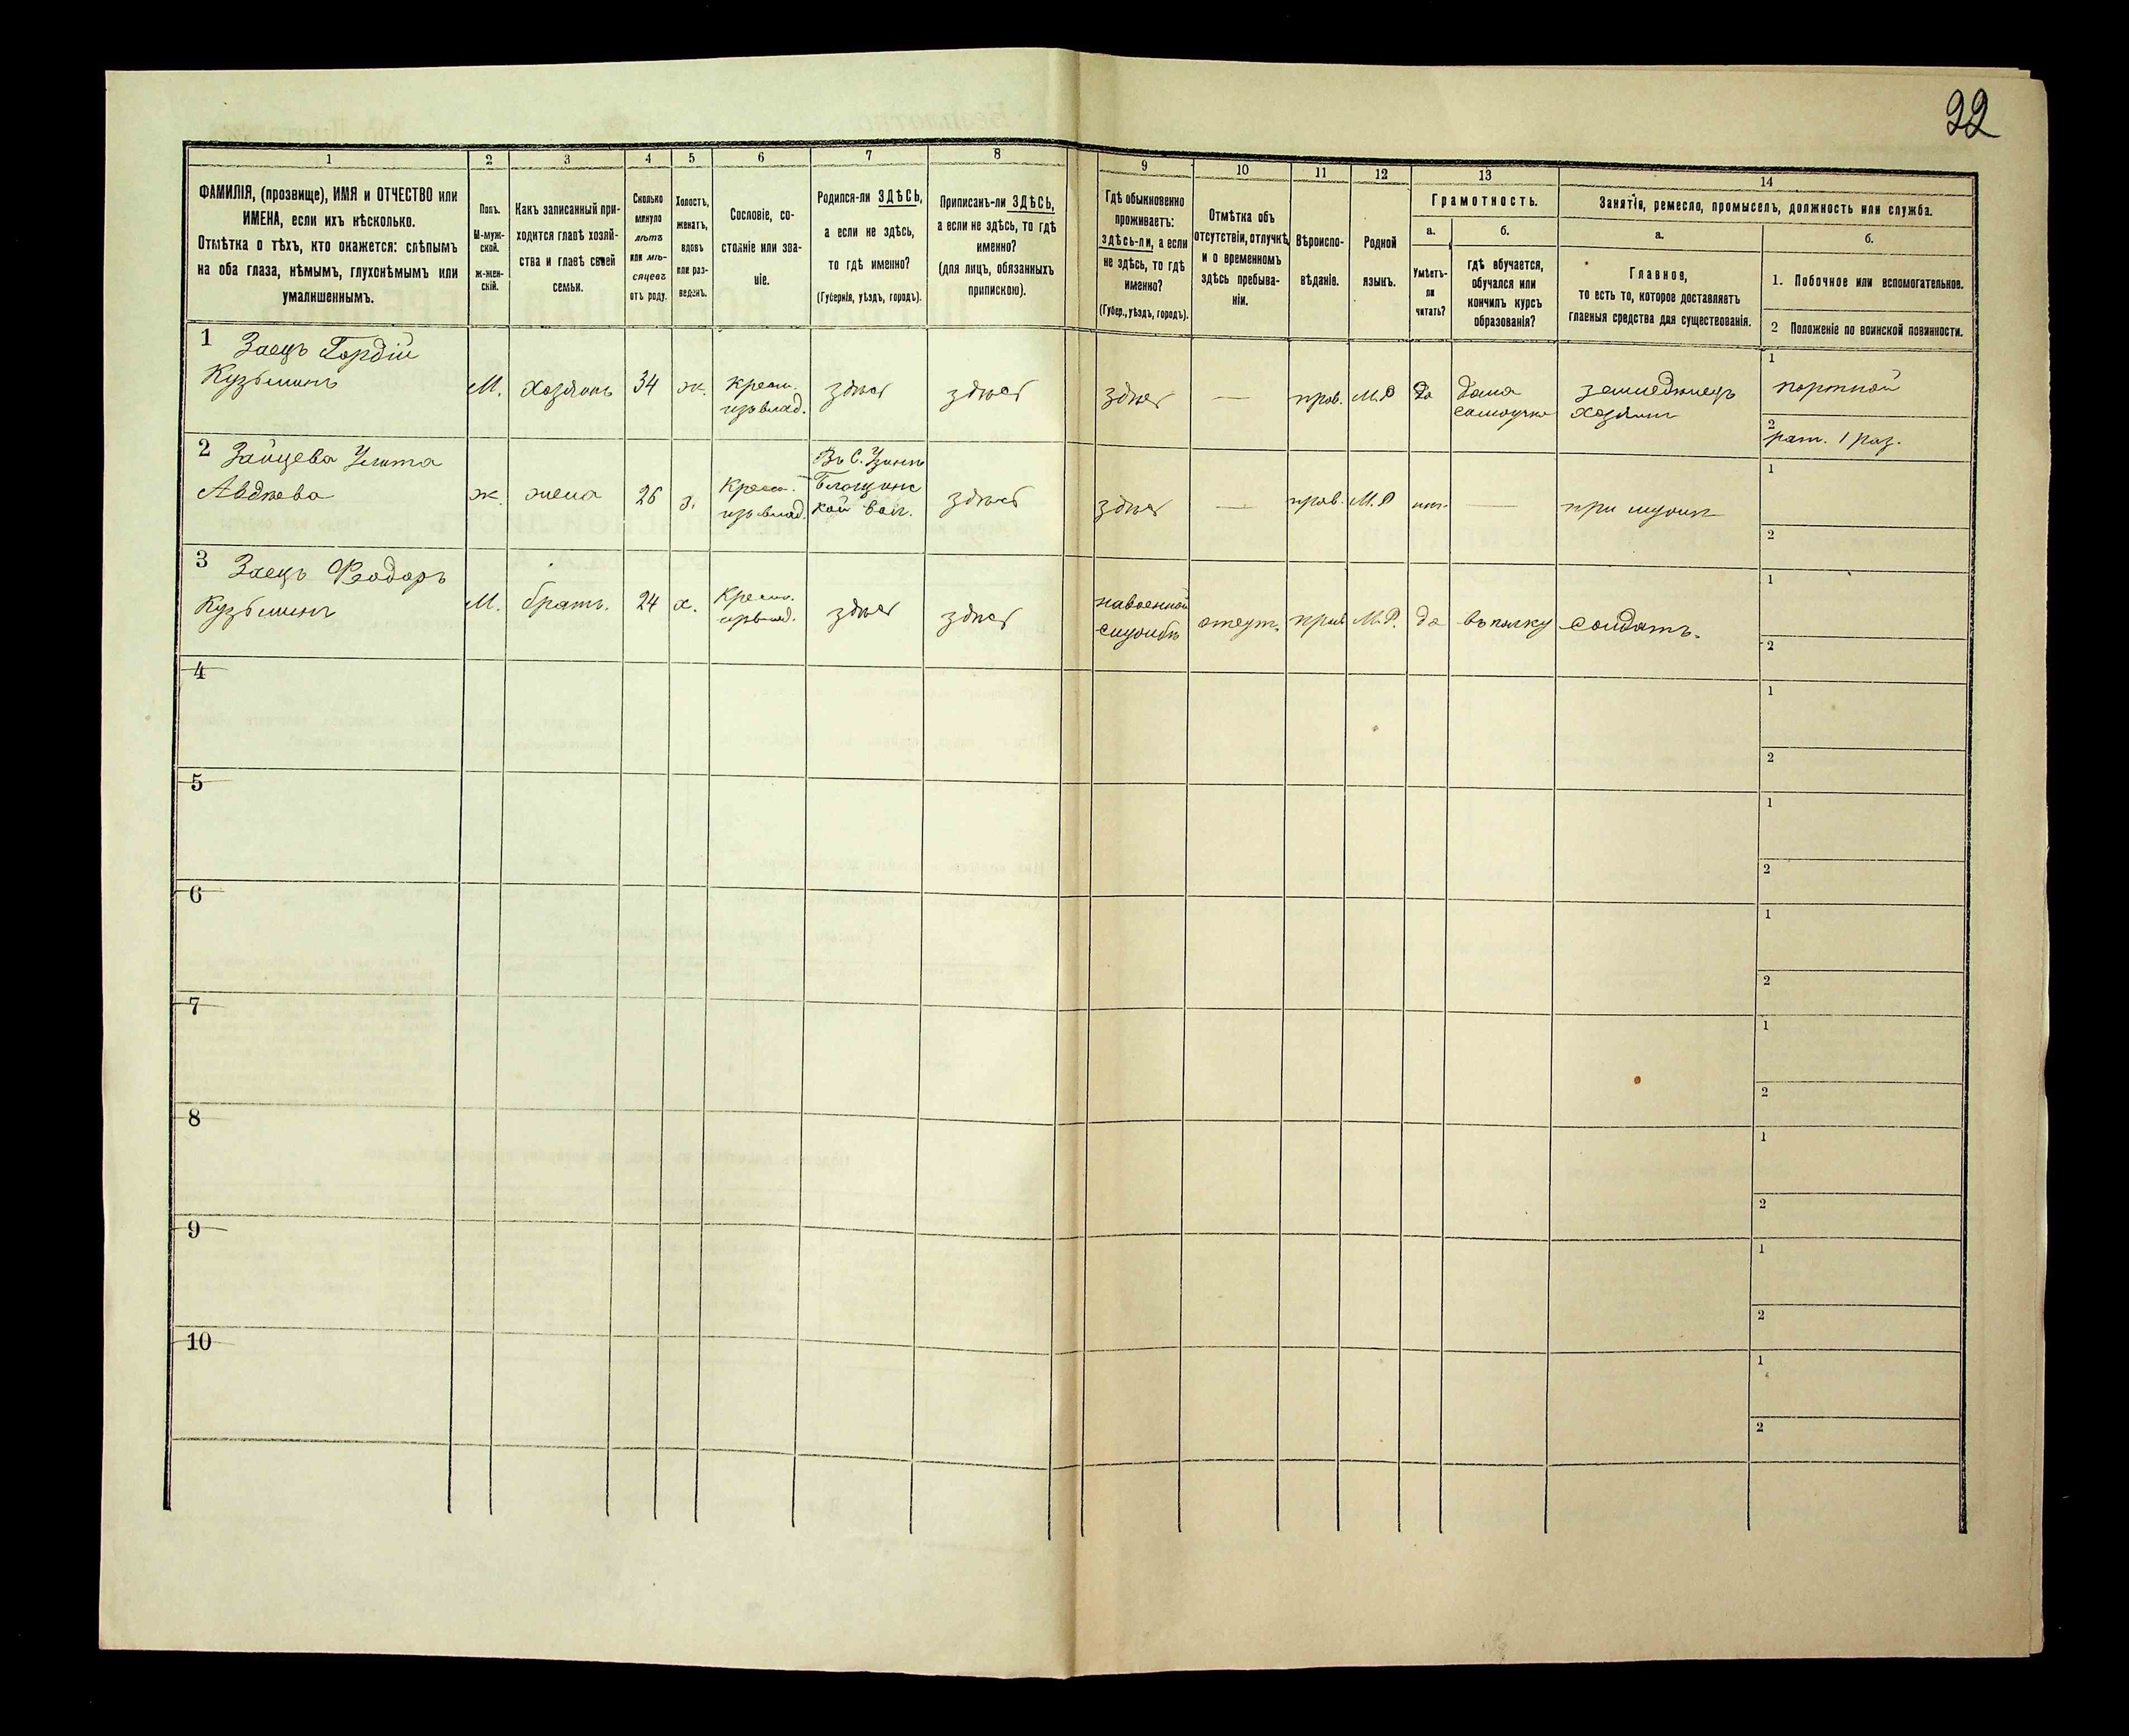 22
1 2 3 4 5 6 7 8 9 10 11 12 13 14
ФАМИЛІЯ, (прозвище), ИМЯ и ОТЧЕСТВО или
ИМЕНА, если ихъ нѣсколько.
Отмѣтка о тѣхъ, кто окажется: слѣпымъ
на оба глаза, нѣмымъ, глухонѣмымъ или
умалишеннымъ.
Полъ.
М-муж-
ской.
ж-жен-
скій.
Какъ записанный при-
ходится главѣ хозяй-
ства и главѣ своей
семьи.
Сколько
минуло
лѣтъ
или мѣ-
сяцевъ
отъ роду.
Холостъ,
женатъ,
вдовъ
или раз-
веденъ.
Сословіе, со-
стояніе или зва-
ніе.
Родился-ли ЗДѢСЬ,
а если не здѣсь,
то гдѣ именно?
(Губернія, уѣздъ, городъ).
Приписанъ-ли ЗДѢСЬ,
а если не здѣсь, то гдѣ
именно?
(для лицъ, обязанныхъ
припискою).
Гдѣ обыкновенно
проживаетъ:
здѣсь-ли, а если
не здѣсь, то гдѣ
именно?
(Губер., уѣздъ, городъ).
Отмѣтка объ
отсутствіи, отлучкѣ
и о временномъ
здѣсь пребыва-
ніи.
Вѣроиспо-
вѣданіе.
Родной
языкъ.
Грамотность.
а.
Умѣетъ-
ли
читать?
б.
гдѣ обучается,
обучался или
кончилъ курсъ
образованія?
Занятія, ремесло, промыселъ, должность или служба.
а.
Главное,
то есть то, которое доставляетъ
главныя средства для существованія.
б.
1. Побочное или вспомогательное.
2 Положеніе по воинской повинности.
1 Заецъ Гордій
Кузьминъ
М.
хозяинъ
34
ж.
крест.
изъ влад.
здѣсь
здѣсь
здѣсь
—
прав.
М.Р
да
дома
самоучка
земледѣлецъ
хозяинъ
1
портной
2
рат. 1 раз.
2 Зайцева Улита
Авдѣева
ж.
жена
26
з.
крест.
изъ влад.
Въ С.
кой вол.
здѣсь
здѣсь
—
прав.
М.Р
нѣт.
—
при мужѣ
1
2
3 Заецъ Феодоръ
Кузьминъ
М.
братъ.
24
х.
Крест.
изъ влад.
здѣсь
здѣсь
на военной
службѣ
отсут.
прав
М.Р.
да
въ полку
солдатъ.
1
2
4
1
2
5
1
2
6
1
2
7
1
2
8
1
2
9
1
2
10
1
2